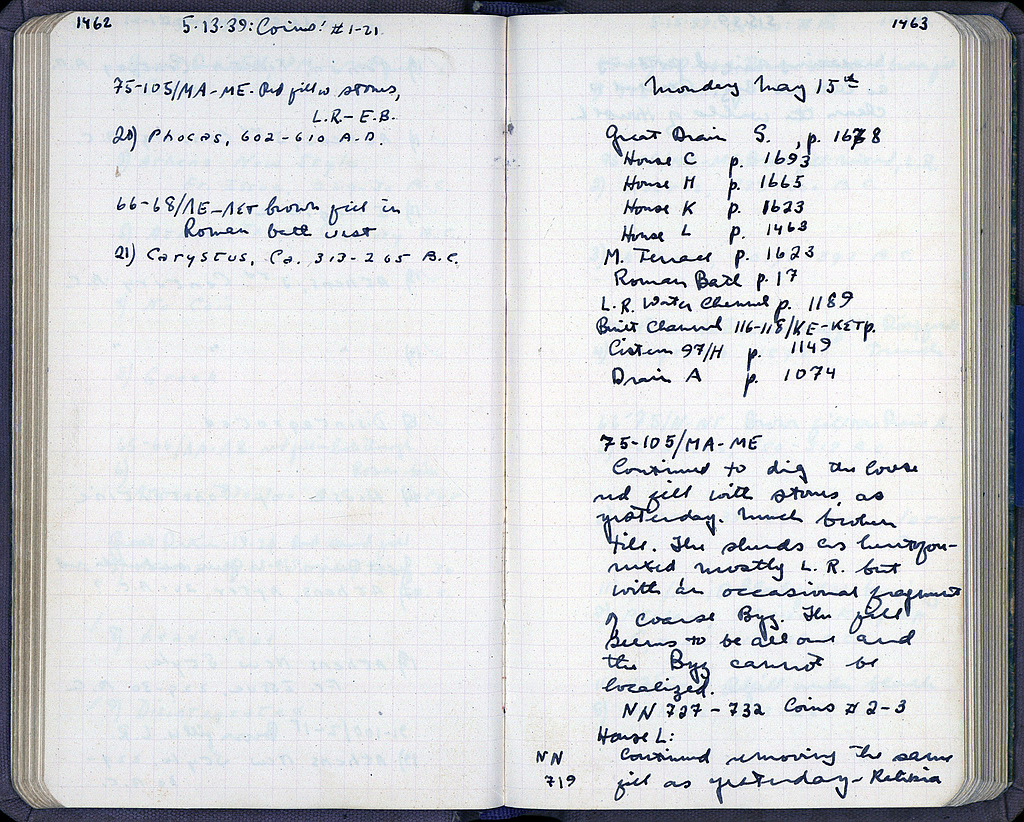 1462
5.13.39: Coins: #1-21
75-105/MA-ME. Red fill w stones,
L.R.-E.B.
20) Phocas, 602-610 A.D.
66-68/ΛE-ΛΣΤ brown fill in
Roman bath west
21) Carystus, Ca. 313-265 B.C.
1463
Monday May 15th
Great Drain S., p. 1678
House C p. 1693
House H p. 1665
House K p. 1623
House L p. 1463
M. Terrace p. 1623
Roman Bath p. 17
L.R. Water Channel p. 1189
Built Channel 116-118/KE-KΣΤ p.
Cistern 97/H p. 1149
Drain A p. 1074
75-105/MA-ME
Continued to dig the loose
red fill with stones, as
yesterday. Much broken
tile. The sherds as heretofore
mixed mostly L.R. but
with an occasional fragment
of coarse Byz. The fill
seems to be all one and
the Byz cannot be
localized.
NN 727-732 Coins # 2-3
House L:
NN Continued removing the same
719 fill as yesterday -